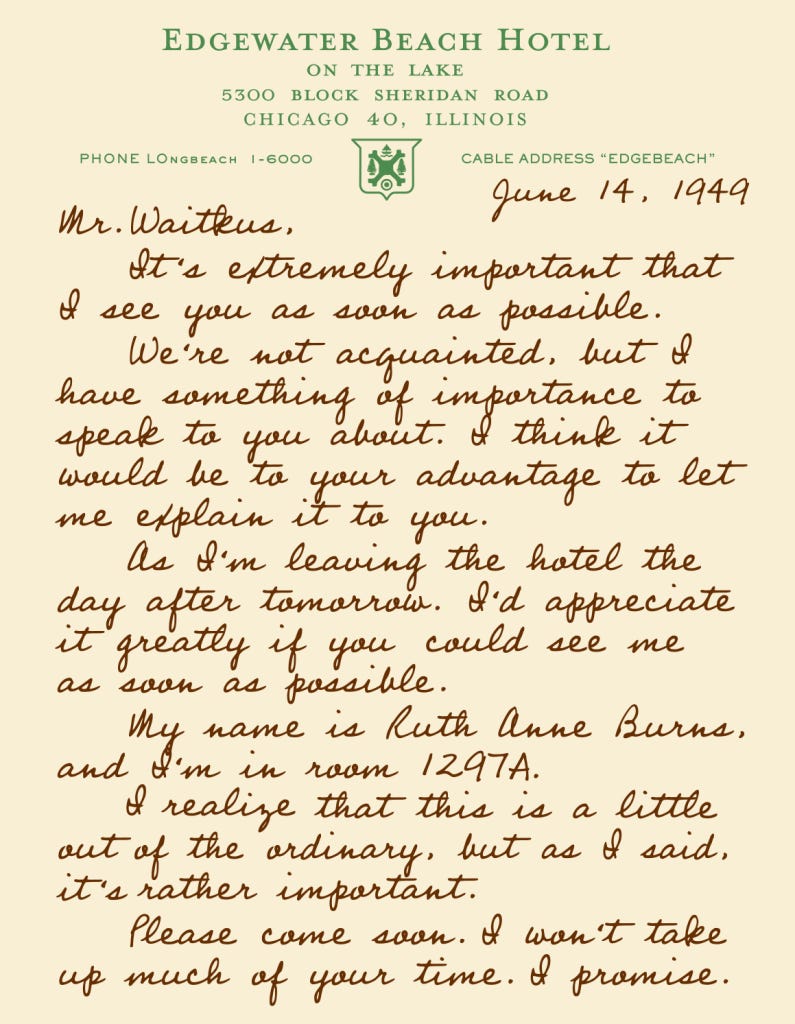 EDGEWATER BEACH HOTEL
ON THE LAKE
5300 BLOCK SHERIDAN ROAD
CHICAGO 40, ILLINOIS
PHONE LONGBEACH 1-6000
CABLE ADDRESS “EDGEBEACH”
June 14, 1949
Mr. Waitkus,
It's extremely important that
I see you as soon as possible.
We're not acquainted, but I
have something of importance to
speak to you about. I think it
would be to your advantage to let
me explain it to you.
As I'm leaving the hotel the
day after tomorrow. I'd appreciate
it greatly if you could see me
as soon as possible.
My name is Ruth Anne Burns,
and I'm in room 1297A.
I realize that this is a little
out of the ordinary, but as I said,
it's rather important.
Please come soon. I won't take
up much of your time. I promise.